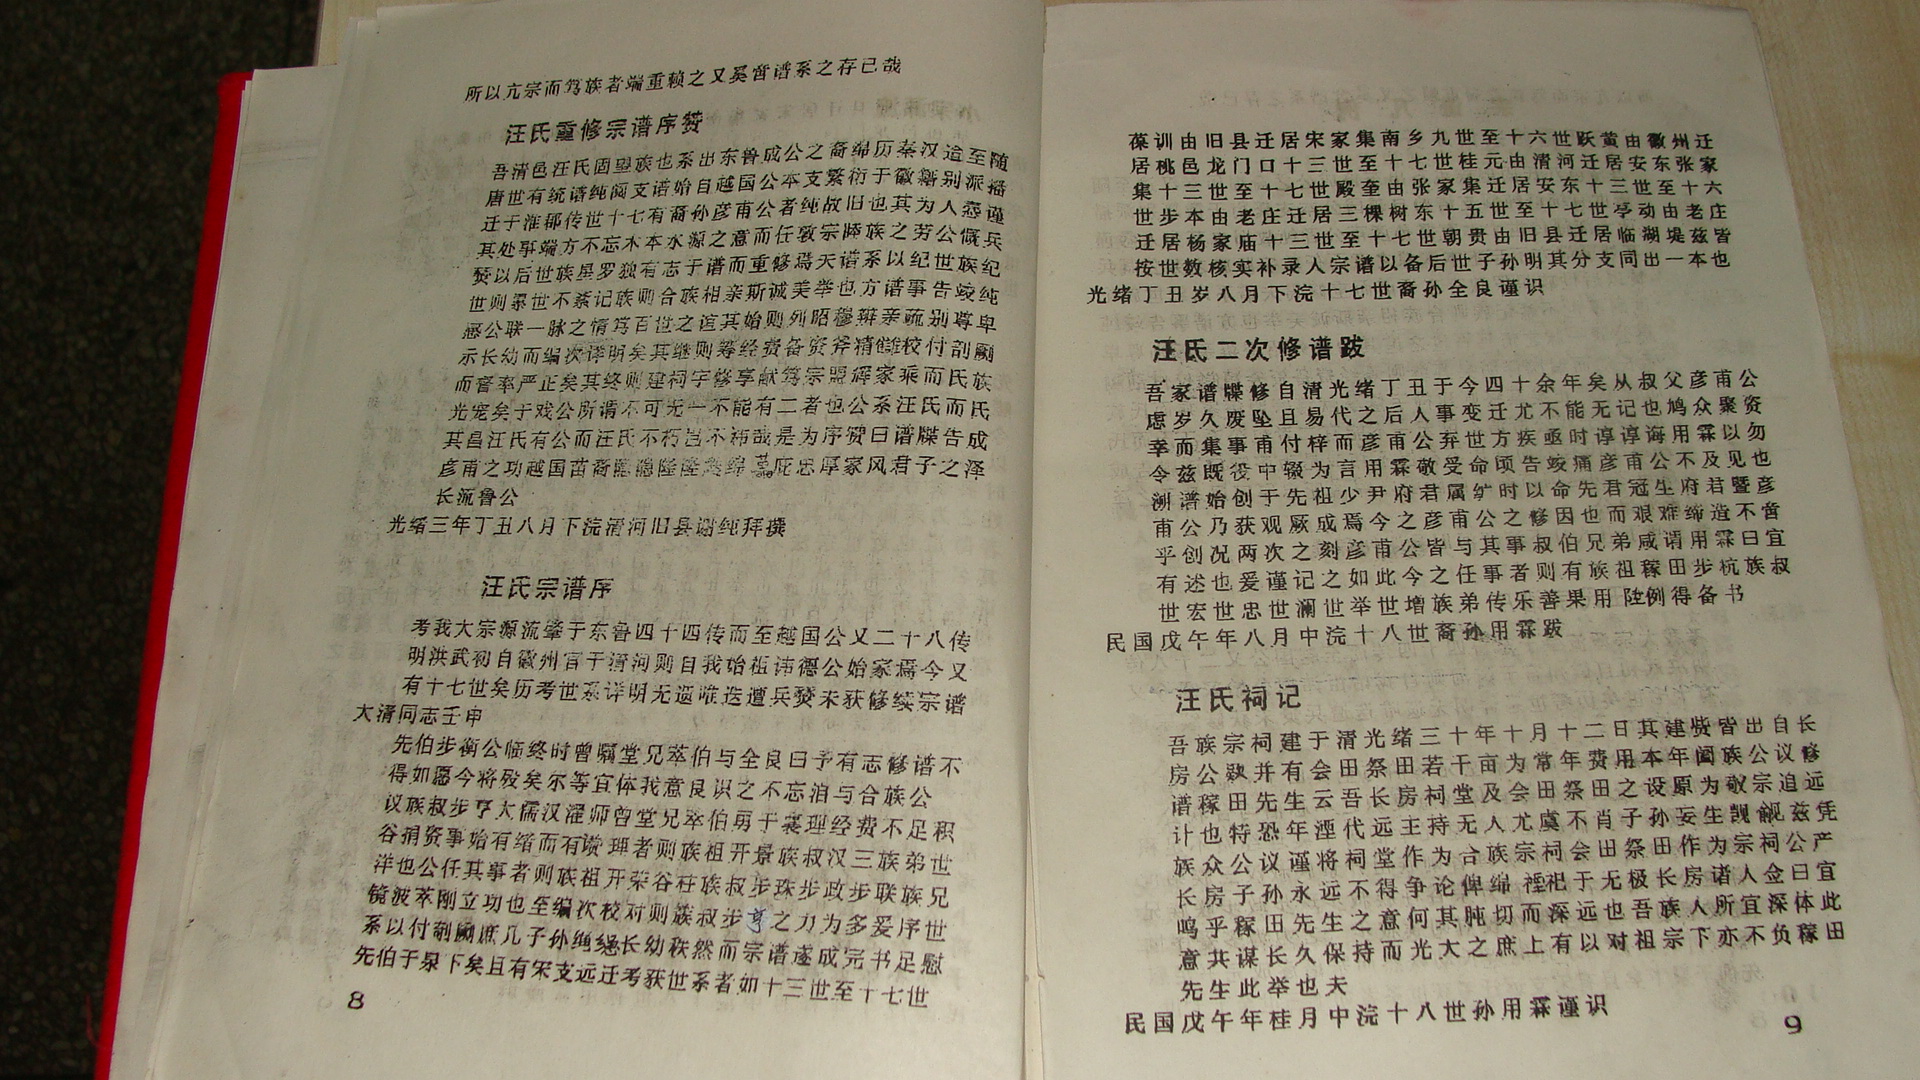 所以亢宗而笃族者端重赖之又奚啻谱系之存已哉
汪氏重修宗谱序赞
吾清邑汪氏固望族也系出东鲁成公之裔绵历秦汉迨至随
唐世有统谱纯阅支谱始自越国公本支繁衍于徽繇别派播
迁于淮郡传世十七有裔孙彦甫公者纯故旧也其为人悫谨
其处事端方不忘木本水源之意而任敦宗睦族之劳公慨兵
燹以后世族星罗独有志于谱而重修焉夫谱系以纪世族纪
世则累世不紊记族则合族相亲斯诚美举也方谱事告竣纯
感公联一脉之情笃百世之谊其始则列昭穆辨亲疏别尊卑
示长幼而编次详明矣其继则筹经费备资斧精雠校付剞劂
而督率严正矣其终则建祠宇修享献笃宗盟辉家乘而氏族
光宠矣于戏公所谓不可无一不能有二者也公系汪氏而氏
其昌汪氏有公而汪氏不朽岂不祎哉是为序赞曰谱牒告成
彦甫之功越国苗裔 隆隆 绵 庇忠厚家风君子之泽
长流鲁公
光绪三年丁丑八月下浣清河旧县谢纯拜撰
汪氏宗谱序
考我大宗源流肇于东鲁四十四传而至越国公又二十八传
明洪武初自徽州官于清河则自我始祖讳德公始家焉今又
有十七世矣历考世系详明无遗唯迭遭兵燹未获修续宗谱
大清同志壬申
先伯步衡公临终时曾嘱堂兄萃伯与全良曰予有志修谱不
得如愿今将殁矣尔等宜体我意良识之不忘泪与合族公
议族叔步亨大儒汉濯师曾堂兄萃伯勇于襄理经费不足积
谷捐资事始有绪而有赞理者则族祖开景族叔汉三族弟世
洋也公任其事者则族祖开荣谷柱族叔步珠步政步联族兄
镜波萃刚立功也至编次校对则族叔步亨之力为多爰序世
系以付剞劂庶几子孙绳绳长幼秩然而宗谱遂成完书足慰
先伯于泉下矣且有宋支远迁考获世系者如十三世至十七世
8
葆训由旧县迁居宋家集南乡九世至十六世跃黄由徽州迁
居桃邑龙门口十三世至十七世桂元由清河迁居安东张家
集十三世至十七世殿奎由张家集迁居安东十三世至十六
世步本由老庄迁居三棵树东十五世至十七世亭动由老庄
迁居杨家庙十三世至十七世朝贵由旧县迁居临湖堤兹皆
按世数核实补录人宗谱以备后世子孙明其分支同出一本也
光绪丁丑岁八月下浣十七世裔孙全良谨识
汪氏二次修谱跋
吾家谱牒修自清光绪丁丑于今四十余年矣从叔父彦甫公
虑岁久废坠且易代之后人事变迁尤不能无记也鸠众聚资
幸而集事甫付梓而彦甫公弃世方疾亟时谆谆诲用霖以勿
令兹既役中辍为言用霖敬受命顷告竣痛彦甫公不及见也
溯谱始创于先祖少尹府君属纩时以命先君冠生府君暨彦
甫公乃获观厥成焉今之彦甫公之修因也而艰难缔造不啻
乎创况两次之刻彦甫公皆与其事叔伯兄弟咸谓用霖曰宜
有述也爰谨记之如此今之任事者则有族祖稼田步杭族叔
世宏世忠世澜世举世增族弟传乐善果用陞例得备书
民国戊午年八月中浣十八世裔孙用霖跋
汪氏祠记
吾族宗祠建于清光绪三十年十月十二日其建赀皆出自长
房公款并有会田祭田若干亩为常年费用本年阖族公议修
谱稼田先生云吾长房祠堂及会田祭田之设原为敬宗追远
计也特恐年湮代远主持无人尤虞不肖子孙妄生觊觎兹凭
族众公议谨将祠堂作为合族宗祠会田祭田作为宗祠公产
长房子孙永远不得争论俾绵禋祀于无极长房诸人佥曰宜
呜乎稼田先生之意何其肫切而深远也吾族人所宜深体此
意共谋长久保持而光大之庶上有以对祖宗下亦不负稼田
先生此举也夫
民国戊午年桂月中浣十八世孙用霖谨识
9